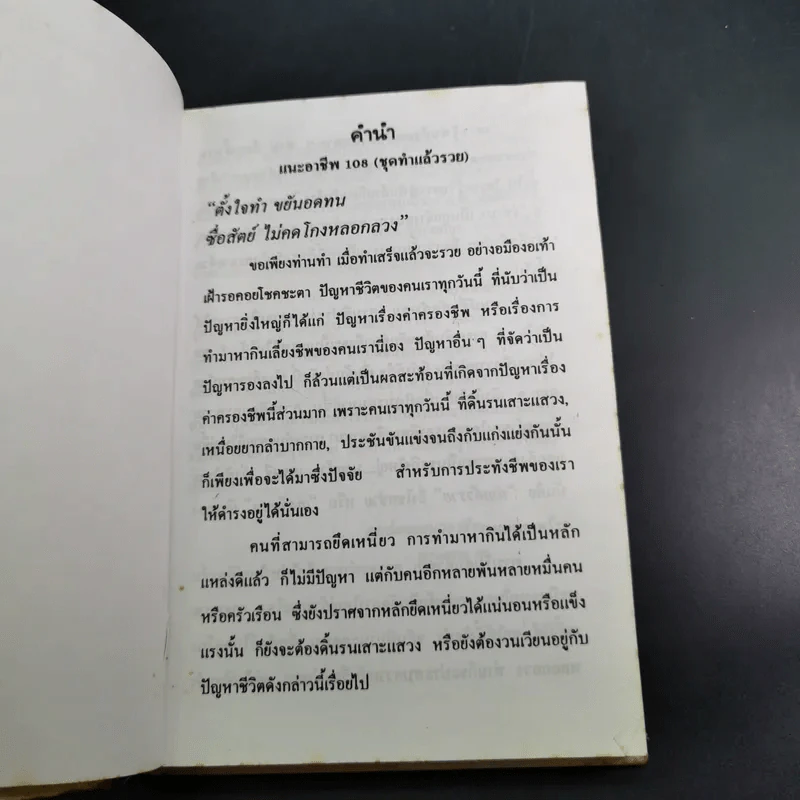 คำนำ
แนะอาชีพ 108 (ชุดทำแล้วรวย)
“ตั้งใจทำ ขยันอดทน
ซื่อสัตย์ ไม่คดโกงหลอกลวง”
ขอเพียงท่านทำ เมื่อทำเสร็จแล้วจะรวย อย่างอมืองอเท้า
เฝ้ารอคอยโชคชะตา ปัญหาชีวิตของคนเราทุกวันนี้ ที่นับว่าเป็น
ปัญหายิ่งใหญ่ก็ได้แก่ ปัญหาเรื่องค่าครองชีพ หรือเรื่องการ
ทำมาหากินเลี้ยงชีพของคนเรานี้เอง ปัญหาอื่น ๆ ที่จัดว่าเป็น
ปัญหารองลงไป ก็ล้วนแต่เป็นผลสะท้อนที่เกิดจากปัญหาเรื่อง
ค่าครองชีพนี้ส่วนมาก เพราะคนเราทุกวันนี้ ที่ดิ้นรนเสาะแสวง,
เหนื่อยยากลำบากกาย, ประชันขันแข่งจนถึงกับแก่งแย่งกันนั้น
ก็เพียงเพื่อจะได้มาซึ่งปัจจัย สำหรับการประทังชีพของเรา
ให้ดำรงอยู่ได้นั่นเอง
คนที่สามารถยึดเหนี่ยว การทำมาหากินได้เป็นหลัก
แหล่งดีแล้ว ก็ไม่มีปัญหา แต่กับคนอีกหลายพันหลายหมื่นคน
หรือครัวเรือน ซึ่งยังปราศจากหลักยึดเหนี่ยวได้แน่นอนหรือแข็ง
แรงนั้น ก็ยังจะต้องดิ้นรนเสาะแสวง หรือยังต้องวนเวียนอยู่กับ
ปัญหาชีวิตดังกล่าวนี้เรื่อยไป